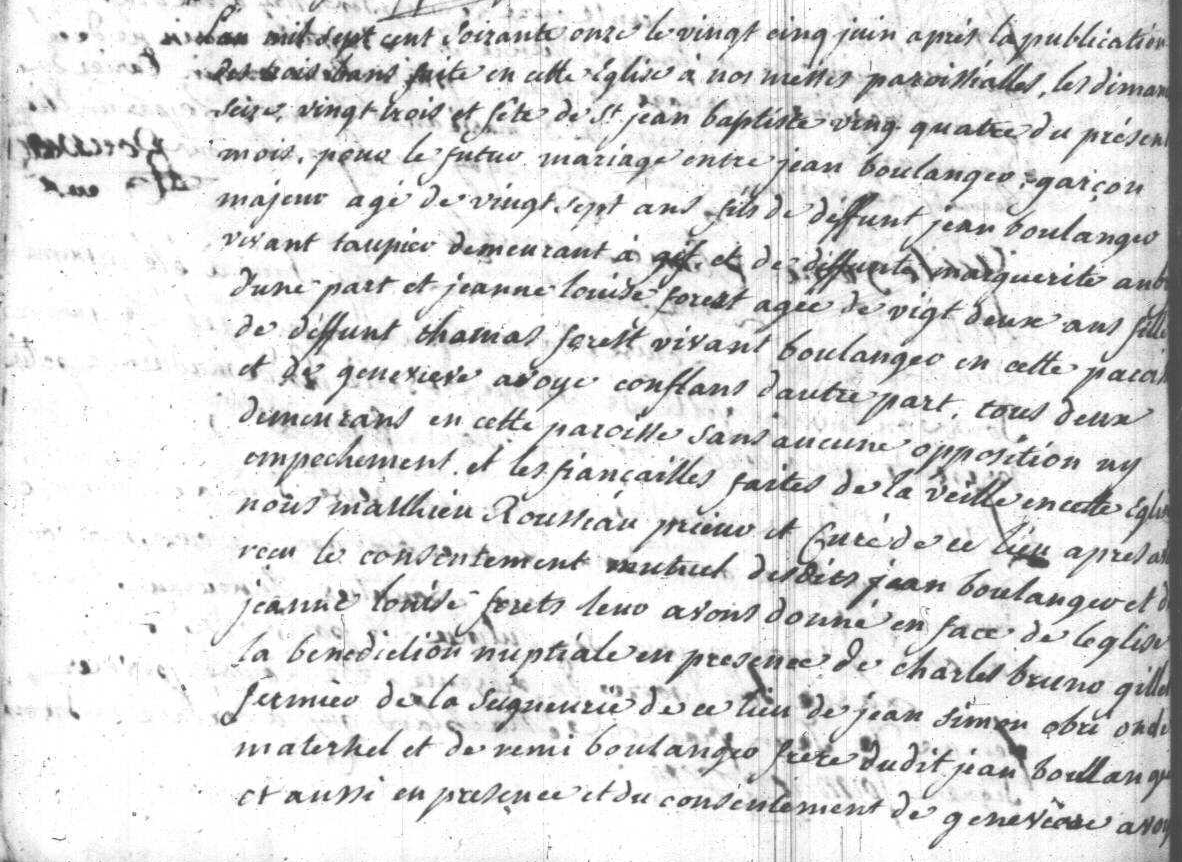 Lan mil sept cent soixante onze le vingt cinq juin après la publication
des trois bans faite en cette église à nos messes paroissialles, les diman
seize, vingt trois et fête de St jean baptiste vingt quatre du présent
mois, pour le futur mariage entre jean boulanger, garçon
majeur agé de vingt sept ans fils de deffunt jean boulanger
vivant taupier demeurant à gif et de deffunte marguerite aub
dune part et jeanne louise forest agée de vigt deux ans fille
de deffunt thomas forest vivant boulanger en cette parois
et de genevieve avoye conflans dautre part, tous deux
demeurans en cette paroisse sans aucune opposition ny
empechement, et les fiançailles faites de la veille en cette église
nous matthieu Rousseau prieur et Curé de ce lieu apres av
recu le consentement mutuel desdits jean boulanger et d
jeanne louise forets leur avons donné en face de leglise
la benediction nuptiale en presence de charles bruno gillet
fermier de la seigneurie de ce lieu de jean simon obré oncle
maternel et de remi boulanger frere dudit jean boullang
et aussi en presence et du consentement de genevieve avoy